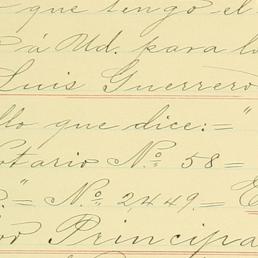 que tengo el
á Ud. para lo
Luis Guerrero
llo que dice:=“
Notario Nº 58=
“ Nº 2,449.= E
Principa